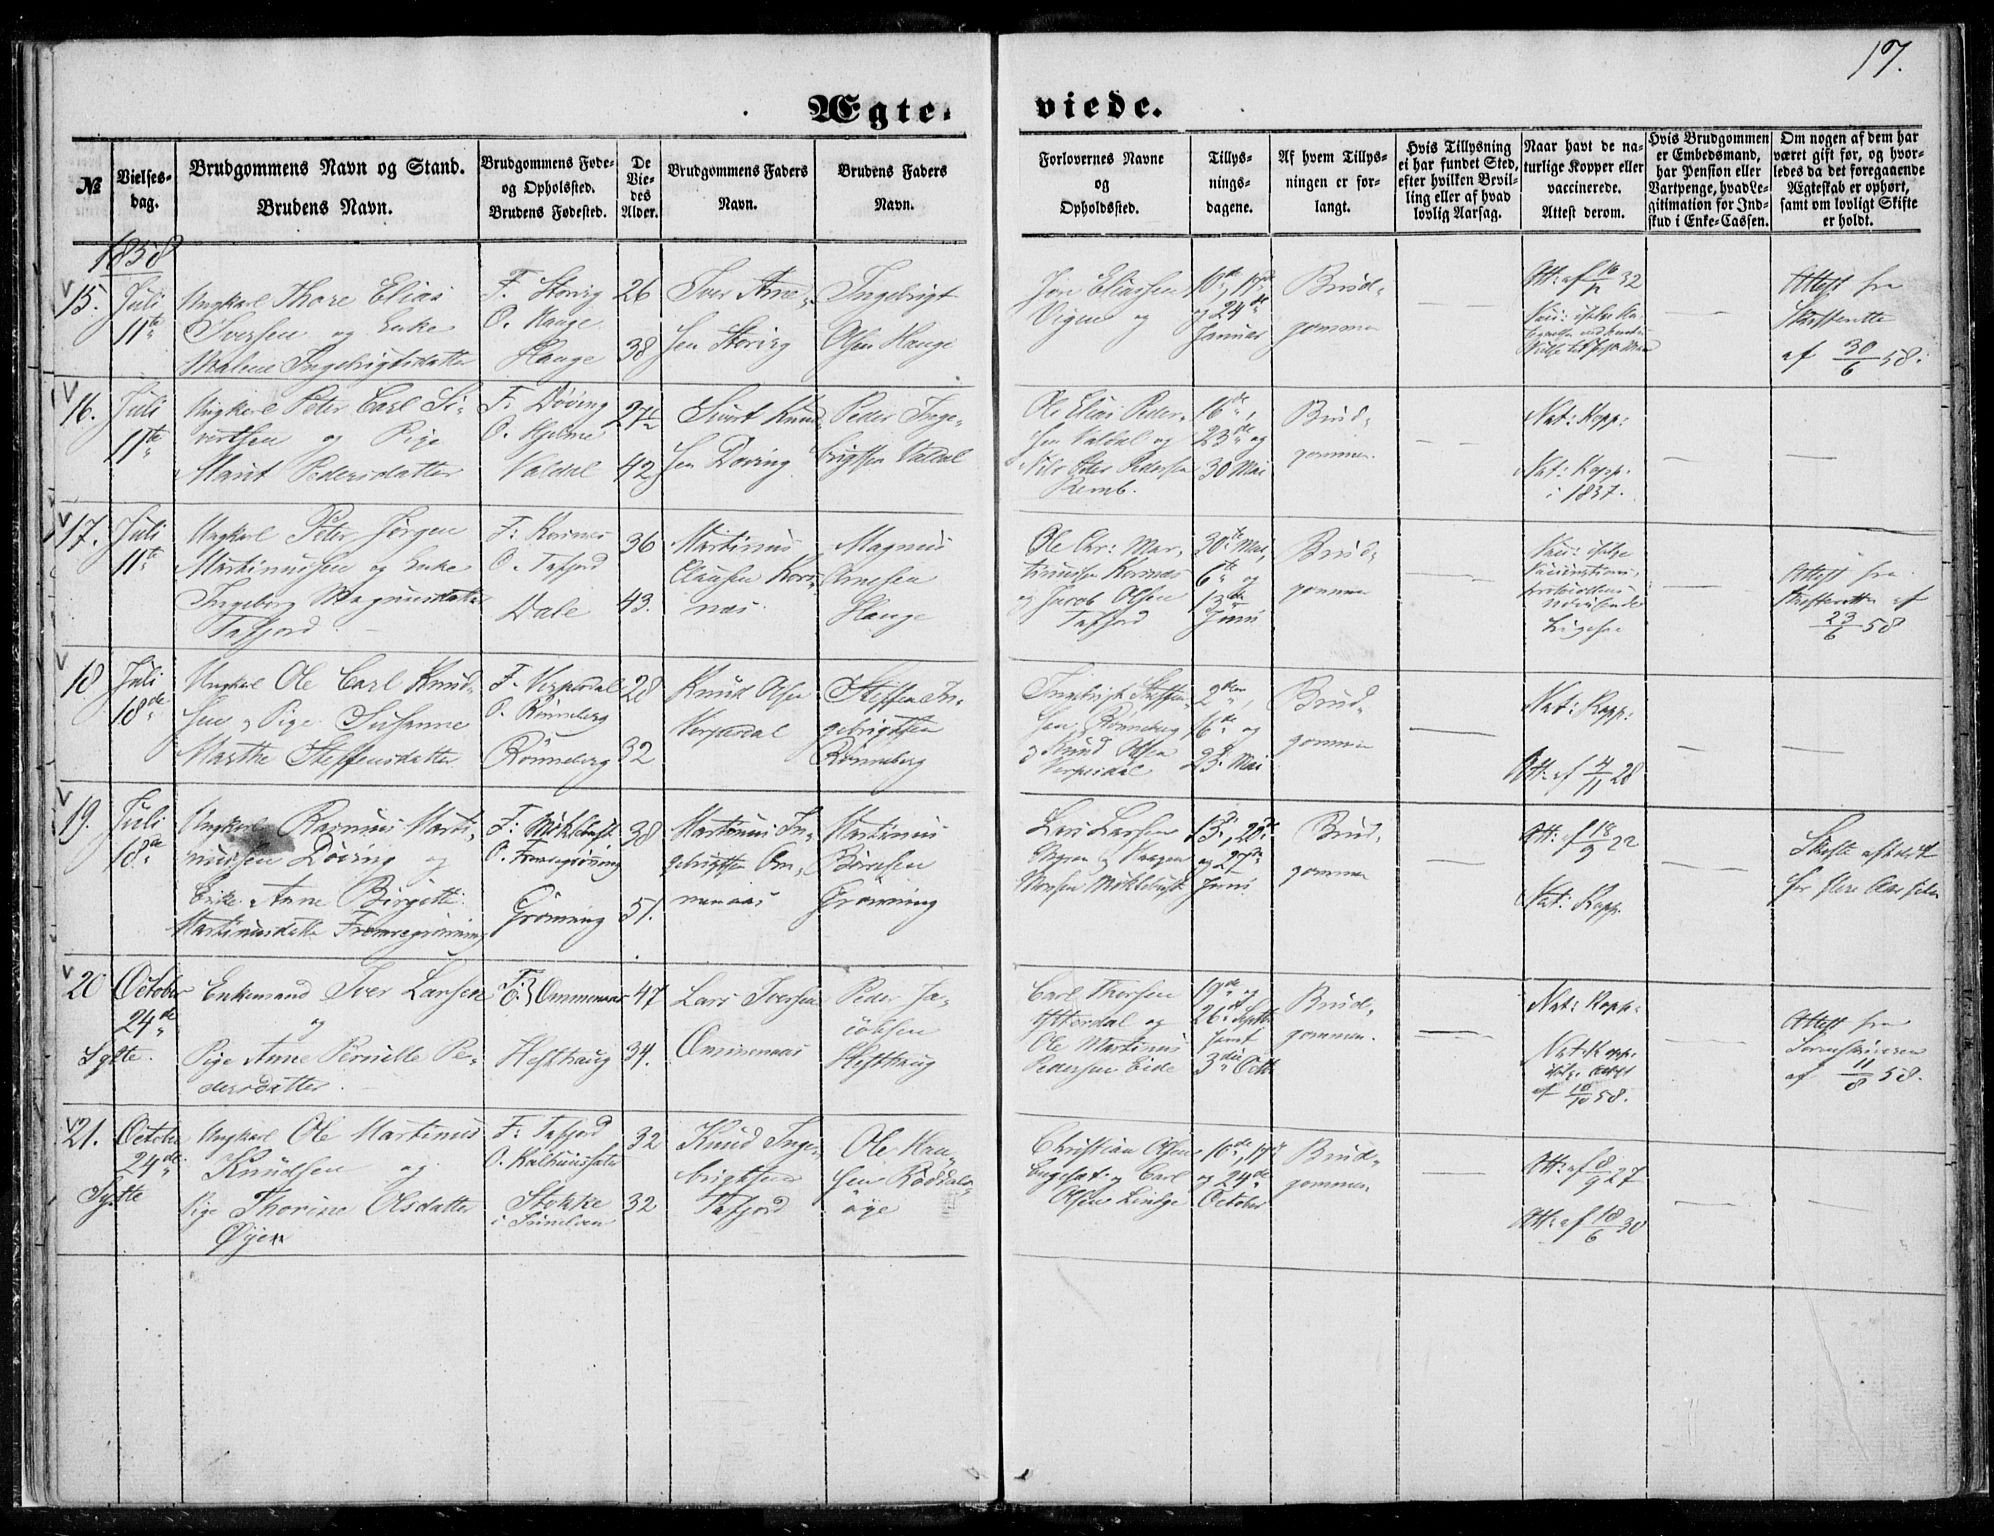 17.
Ægte-
viede.
№
Vielses-
dag.
Brudgommens Navn og Stand.
Brudens Navn.
Brudgommens Føde-
og Opholsted.
Brudens Fødested.
De
Vie-
des
Alder.
Brudgommens Faders
Navn.
Brudens Faders
Navn.
Forlovernes Navne
og
Opholdssted.
Tillys-
nings-
dagene.
Af hvem Tillys-
ningen er for-
langt.
Hvis Tillysning
ei har fundet Sted,
efter hvilken Bevil-
ling eller af hvad
lovlig Aarsag.
Naar havt de na-
turlige Kopper eller
vaccinerede.
Attest derom.
Hvis Brudgommen
er Embedsmand,
har Pension eller
Vartpenge, hvad Le-
gitimation for Ind-
skud i Enke-Cassen.
Om nogen af dem har
været gift før, og hvor-
ledes da det foregaaende
Ægteskab er ophørt,
samt om lovligt Skifte
er holdt.
1858
15.
Juli
11te
Ungkarl Thore Elias
Iversen og Enke
Malene Ingebrigtsdatter
F. Storvig
O. Hauge
Hauge
26
38
Iver Arne-
sen Storvig
Ingebrigt
Olsen Hauge
Jon Eliassen
Vigen og
10de, 17de
og 24de
Januar
Brud-
gommen
Att: af 16/12 32
Attest fra
Skifteretten
af 30/6 58.
16.
Juli
11te
Ungkarl Peter Carl Si-
vertsen og Pige
Marit Pedersdatter
F. Døving
O. Hjelme
Valdal
27½
42
Sivert Knud
sen Døving
Peder Inge-
brigtsen Valdal
Ole Elias Peder-
sen Valdal og
Nils Peter Pedersen
Remb.
16de,
23de og
30 Mai
Brud-
gommen
Nat: Kopp:
Nat: Kopp:
i 1837.
17.
Juli
11te
Ungkarl Peter Jørgen
Martinussen og Enke
Ingeborg Magnusdatter
Tafjord
F: Korsnes
O. Tafjord
Dale
36
43.
Martinus
Clausen Kors-
næs.
Magnus
Arnesen
Hauge
Ole Chr: Mar-
tinussen Korsnæs
og Jacob Olsen
Tafjord
30te Mai,
6te og
13de
Juni
Brud-
gommen
Vac: ifølge
Vaccinations-
Protocollens
Udvisende
Ligesaa
Attest fra
Skifteretten af
23/6 58
18
Juli
18de
Ungkarl Ole Carl Knud-
sen og Pige Susanne
Marthe Steffensdatter
F. Verpesdal
O. Rønneberg
Rønneberg
28
32
Knud Olsen
Verpesdal
Steffen In-
gebrigtsen
Rønneberg
Ingebrigt Steffen-
sen Rønneberg
og Knud Olsen
Verpesdal
2den,
16de og
23. Mai
Brud-
gommen
Nat: Kopp:
Att: af 4/11 28
19.
Juli
18de
Ungkarl Rasmus Marti-
nussen Døving og
Enke Anne Birgitte
Martinusdatter Fremregrønning
F: Möklebust
O. Fremregrøning
Grønning
38
51.
Martinus In-
gebrigtsen Om-
menaas
Martinus
Børresen
Grønning
Lars Larsen
Monsen Möklebust
13., 20de
og 27de
Juni
Brud-
gommen
Att: af 18/9 22
Nat: Kopp.
Skifte afholdt
for flere Aar siden
20
October
24de
Sylte.
Enkemand Iver Larsen
og
Pige Anne Pernille Pe-
dersdatter
F:
O: } Ommenaas
Hesthaug
47
34.
Lars Iversen
Ommenaas
Peder Ja-
cobsen
Hesthaug
Carl Thorsen
og
Ole Martinus
Pedersen Eide
19de og
26. Septbr
samt
3die Octb
Brud-
gommen.
Nat: Kopp:
Nat: Kopp.
ifølge Attest
af 10/10 58.
Attest fra
Sorenskriveren
af 11/8 58.
21.
October
24de
Sylte
Ungkarl Ole Martinus
Knudsen og
Pige Thorine Olsdatter
Øyen
F: Tafjord
O.
Stokke
i Sunelven
32
32
Knud Inge-
brigtsen
Tafjord
Ole Han-
sen Rødsals-
øye
Christian Olsen
Engeset og Carl
Olsen Linge
10de, 17de
og 24de
October
Brud-
gommen
Att: af 8/9 27
Att: af 18/6 30